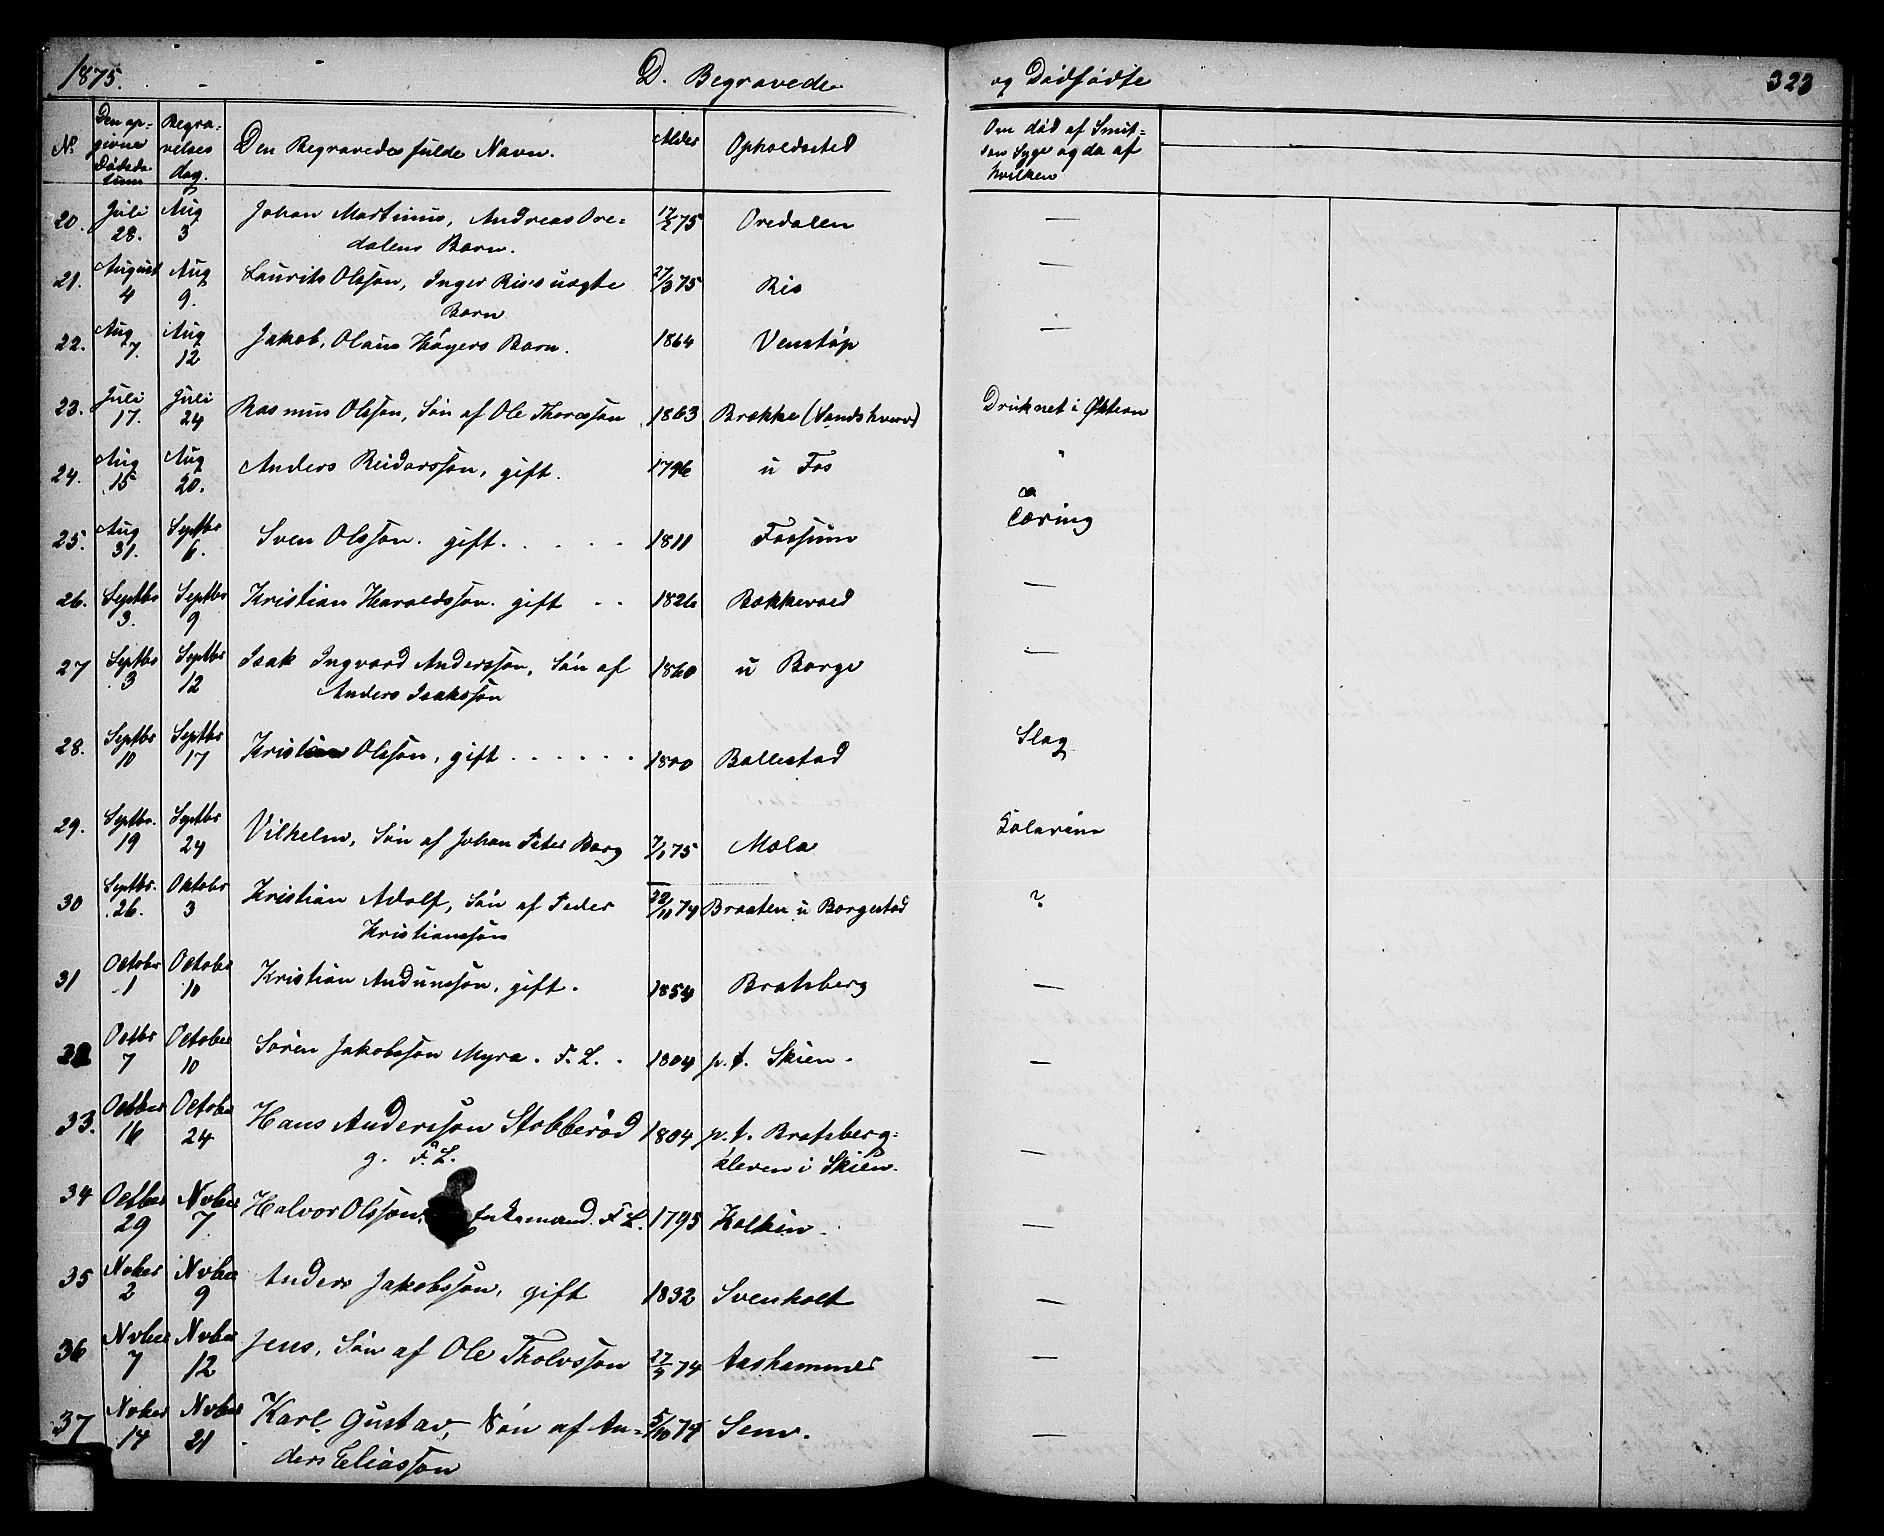 1875. D. Begravede og Dødfødte 323
No Den opgivne Dødsdatum Begravelsesdag. Den Begravedes fulde Navn. Alder Opholdssted Om død af Smitsom Syge og da af hvilken
20. Juli 28. Aug 3 Johan Martinus, Andreas Ore= 75 Oredalen —
dalens Barn.
21. August 4 Aug 9. Laurits Olsson, Inger Riis uægte 27/3 75 Ris —
Barn
22. Aug 7. Aug 12 Jakob, Olaus Høyers Barn. 1864 Venstøp —
23. Juli 17. Juli 24 Rasmus Olsson, Søn af Ole Thoresson 1863 Brække (Sandshverv) Druknet i
24. Aug 15 Aug 20. Anders Reidarsson, gift. 1796 u Fos "
25. Aug 31. Septbr 6. Sven Olsson. gift. . . . . 1811 Fossum Tæring
26. Septbr 3. Septbr 9 Kristian Haraldsson. gift . . 1826 Bakkevold —
27 Septbr 3 Septbr 12 Isak Ingvard Andersson, Søn af 1860 u Borge —
Anders Isaksson
28. Septbr 10 Septbr 17 Kristian Olsson, gift . . . . . . 1800 Ballestad Slag
29. Septbr. 19 Septbr 24 Vilhelm, Søn af Johan Peter Borg 7/1 75 Mæla Kolerine
30 Septbr. 26. Oktobr 3 Kristian Adolf, Søn af Peder 74 Braaten u Borgestad ?
Kristiansson
31 Octobr 1 Octobr 10 Kristian Audunsson, gift. 1854 Bratsberg —
32 Octbr 7 October 10 Søren Jakobsson Myra. F. L. . 1804 p.t. Skien. —
33. Octber 16 October 24 Hans Andersson Stobberød 1804 p.t. Bratsberg=
g. F. L. kleven i Skien. —
34 Octber 29 Nvber 7 Halvor Olsson, Enkemand. F L. 1795 —
35 Nvber 2 Nvber 9 Anders Jakobsson, gift 1832 Svenholt —
36 Nvber 7 Nvber 12 Jens, Søn af Ole Tholvsson 74 Aashammer —
37 Nvber 14 Nvber 21 Karl Gustav, Søn af An= 5/10 74 Sem. —
ders Eliasson